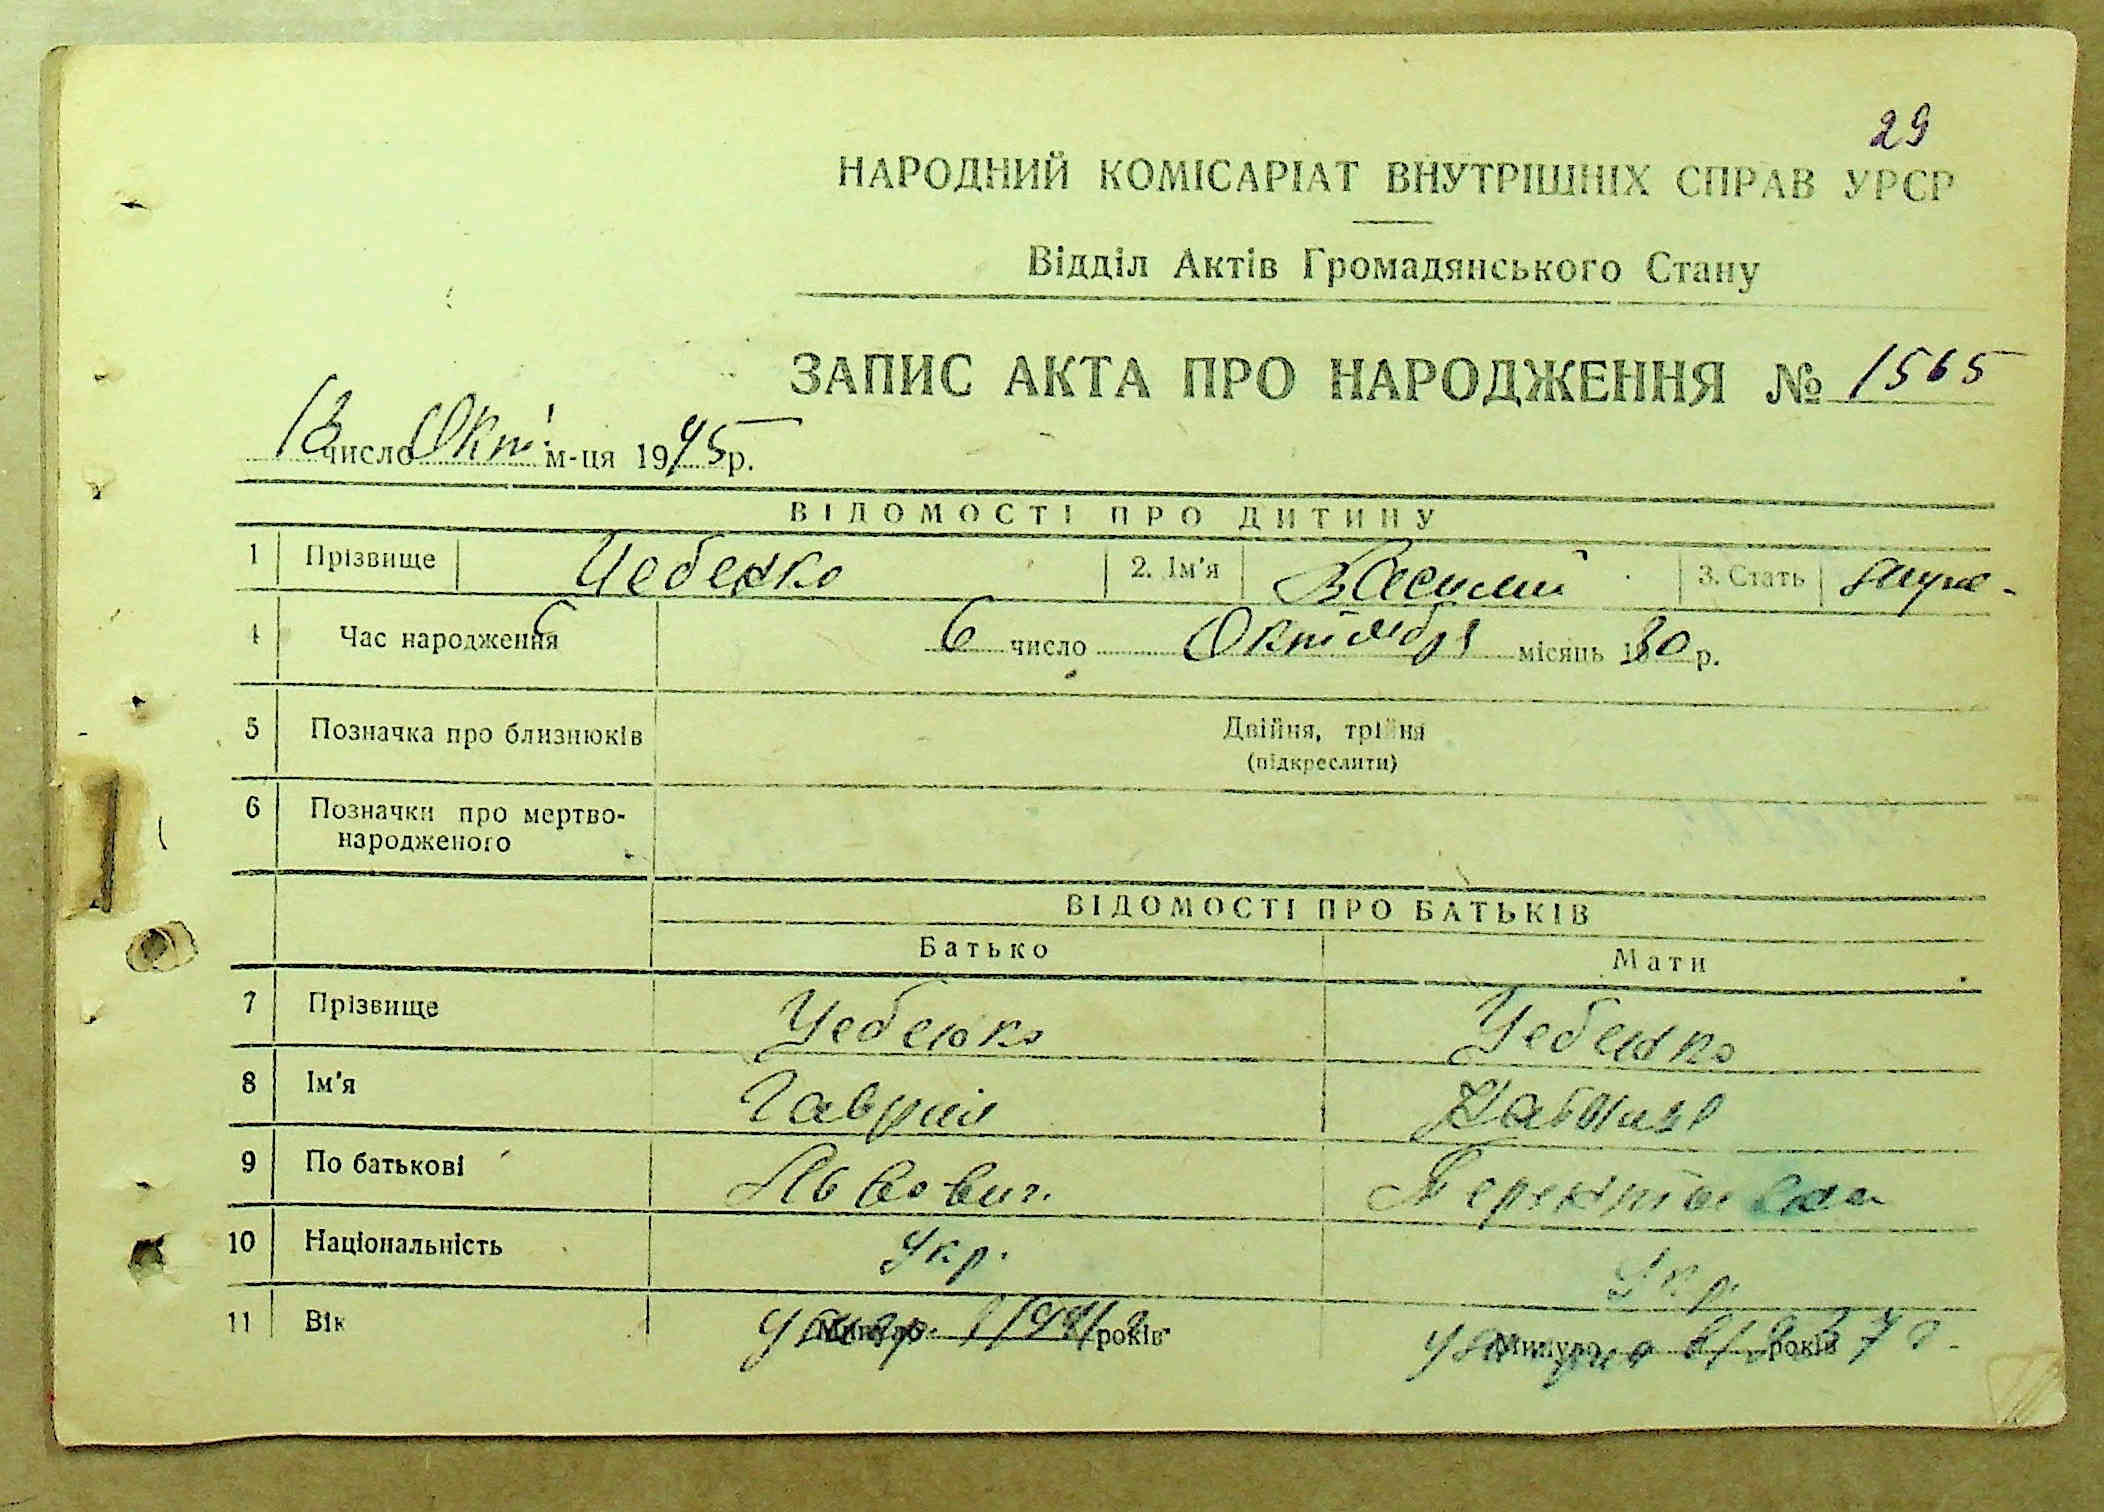 29
НАРОДНИЙ КОМІСАРІАТ ВНУТРІШНІХ СПРАВ УРСР
Відділ Актів Громадянського Стану
ЗАПИС АКТА ПРО НАРОДЖЕННЯ № 1565
число Окт. м-ця 1945 р.
ВІДОМОСТІ ПРО ДИТИНУ
1 Прізвище Чебенко 2. Ім'я Василий 3. Стать
4 Час народження 6 число Октября місяць 30 р.
5 Позначка про близнюків Двійня, трійня
(підкреслити)
6 Позначки про мертво-
народженого
ВІДОМОСТІ ПРО БАТЬКІВ
Батько Мати
7 Прізвище Чебенко Чебенко
8 Ім'я Гаврил
9 По батькові Львович.
10 Національність Укр. Укр.
11 Вік Минуло років Минуло років